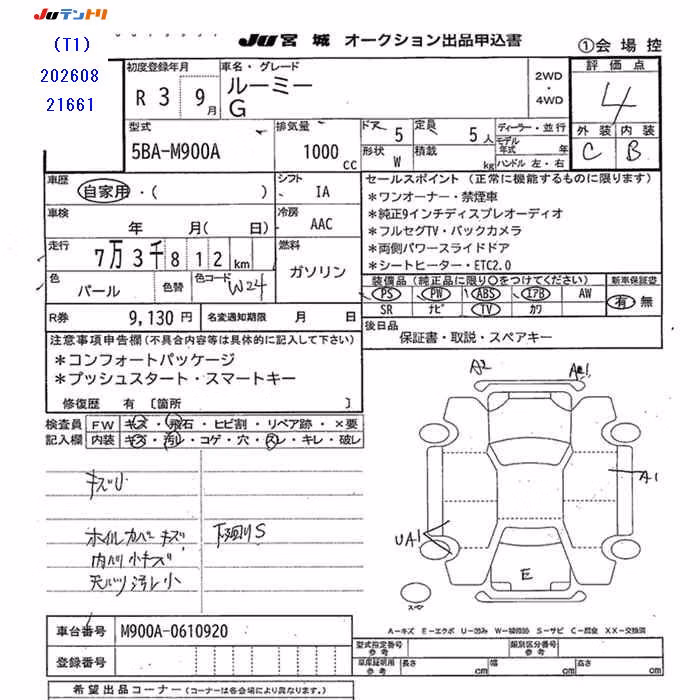 Juテントリ
(T1)
202608
21661
Ju宮城 オークション出品申込書
①会場控
初度登録年月
R 3 9月
車名・グレード
ルーミー
G
2WD
・
4WD
評価点
4
外装 内装
C B
型式
5BA-M900A
排気量
1000 cc
ドア 5
定員 5人
形状 W
積載 kg
ディーラー・並行
モデル年式 年
ハンドル 左・右
車歴
自家用・( )
シフト
IA
車検
年 月( 日)
冷房
AAC
走行
7万3千812km
燃料
ガソリン
色
パール
色替
色コード
W24
R券 9,130円
名変通知期限 月 日
セールスポイント (正常に機能するものに限ります)
*ワンオーナー・禁煙車
*純正9インチディスプレオーディオ
*フルセグTV・バックカメラ
*両側パワースライドドア
*シートヒーター・ETC2.0
装備品(純正品に限り○をつけてください)
PS PW ABS エアB AW
SR ナビ TV カワ
新車保証書
有 無
後日品
保証書・取説・スペアキー
注意事項申告欄(不具合内容等は具体的に記入して下さい)
*コンフォートパッケージ
*プッシュスタート・スマートキー
修復歴 有 〔箇所 〕
検査員
記入欄
FW キズ・飛石・ヒビ割・リペア跡・×要
内装 キズ・汚レ・コゲ・穴・スレ・キレ・破レ
キズU
ホイルカバーキズ
下廻りS
内ハリ小キズ
天ハリ汚レ小
A2
A1
UA1
E
スペア
A-キズ E-エクボ U-凹み W-補修跡 S-サビ C-腐食 XX-交換済
車台番号 M900A-0610920
登録番号
型式指定番号
参考
類別区分番号
参考
車庫証明用
参考
長さ cm
幅 cm
高さ cm
希望出品コーナー (コーナーは各会場により異なります。)